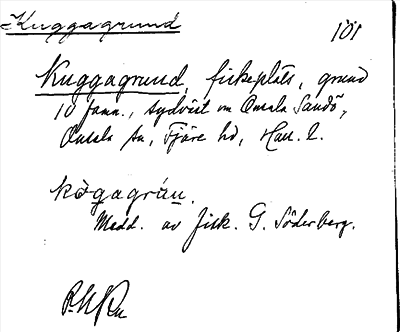 Kuggagrund
101
Kuggagrund, fiskeplåts, grund
10 famn., sydväst om Onsala Sandö,
Onsala sn, Fjäre hd, Hall. l.
Medd. av fisk. G. Söderberg.